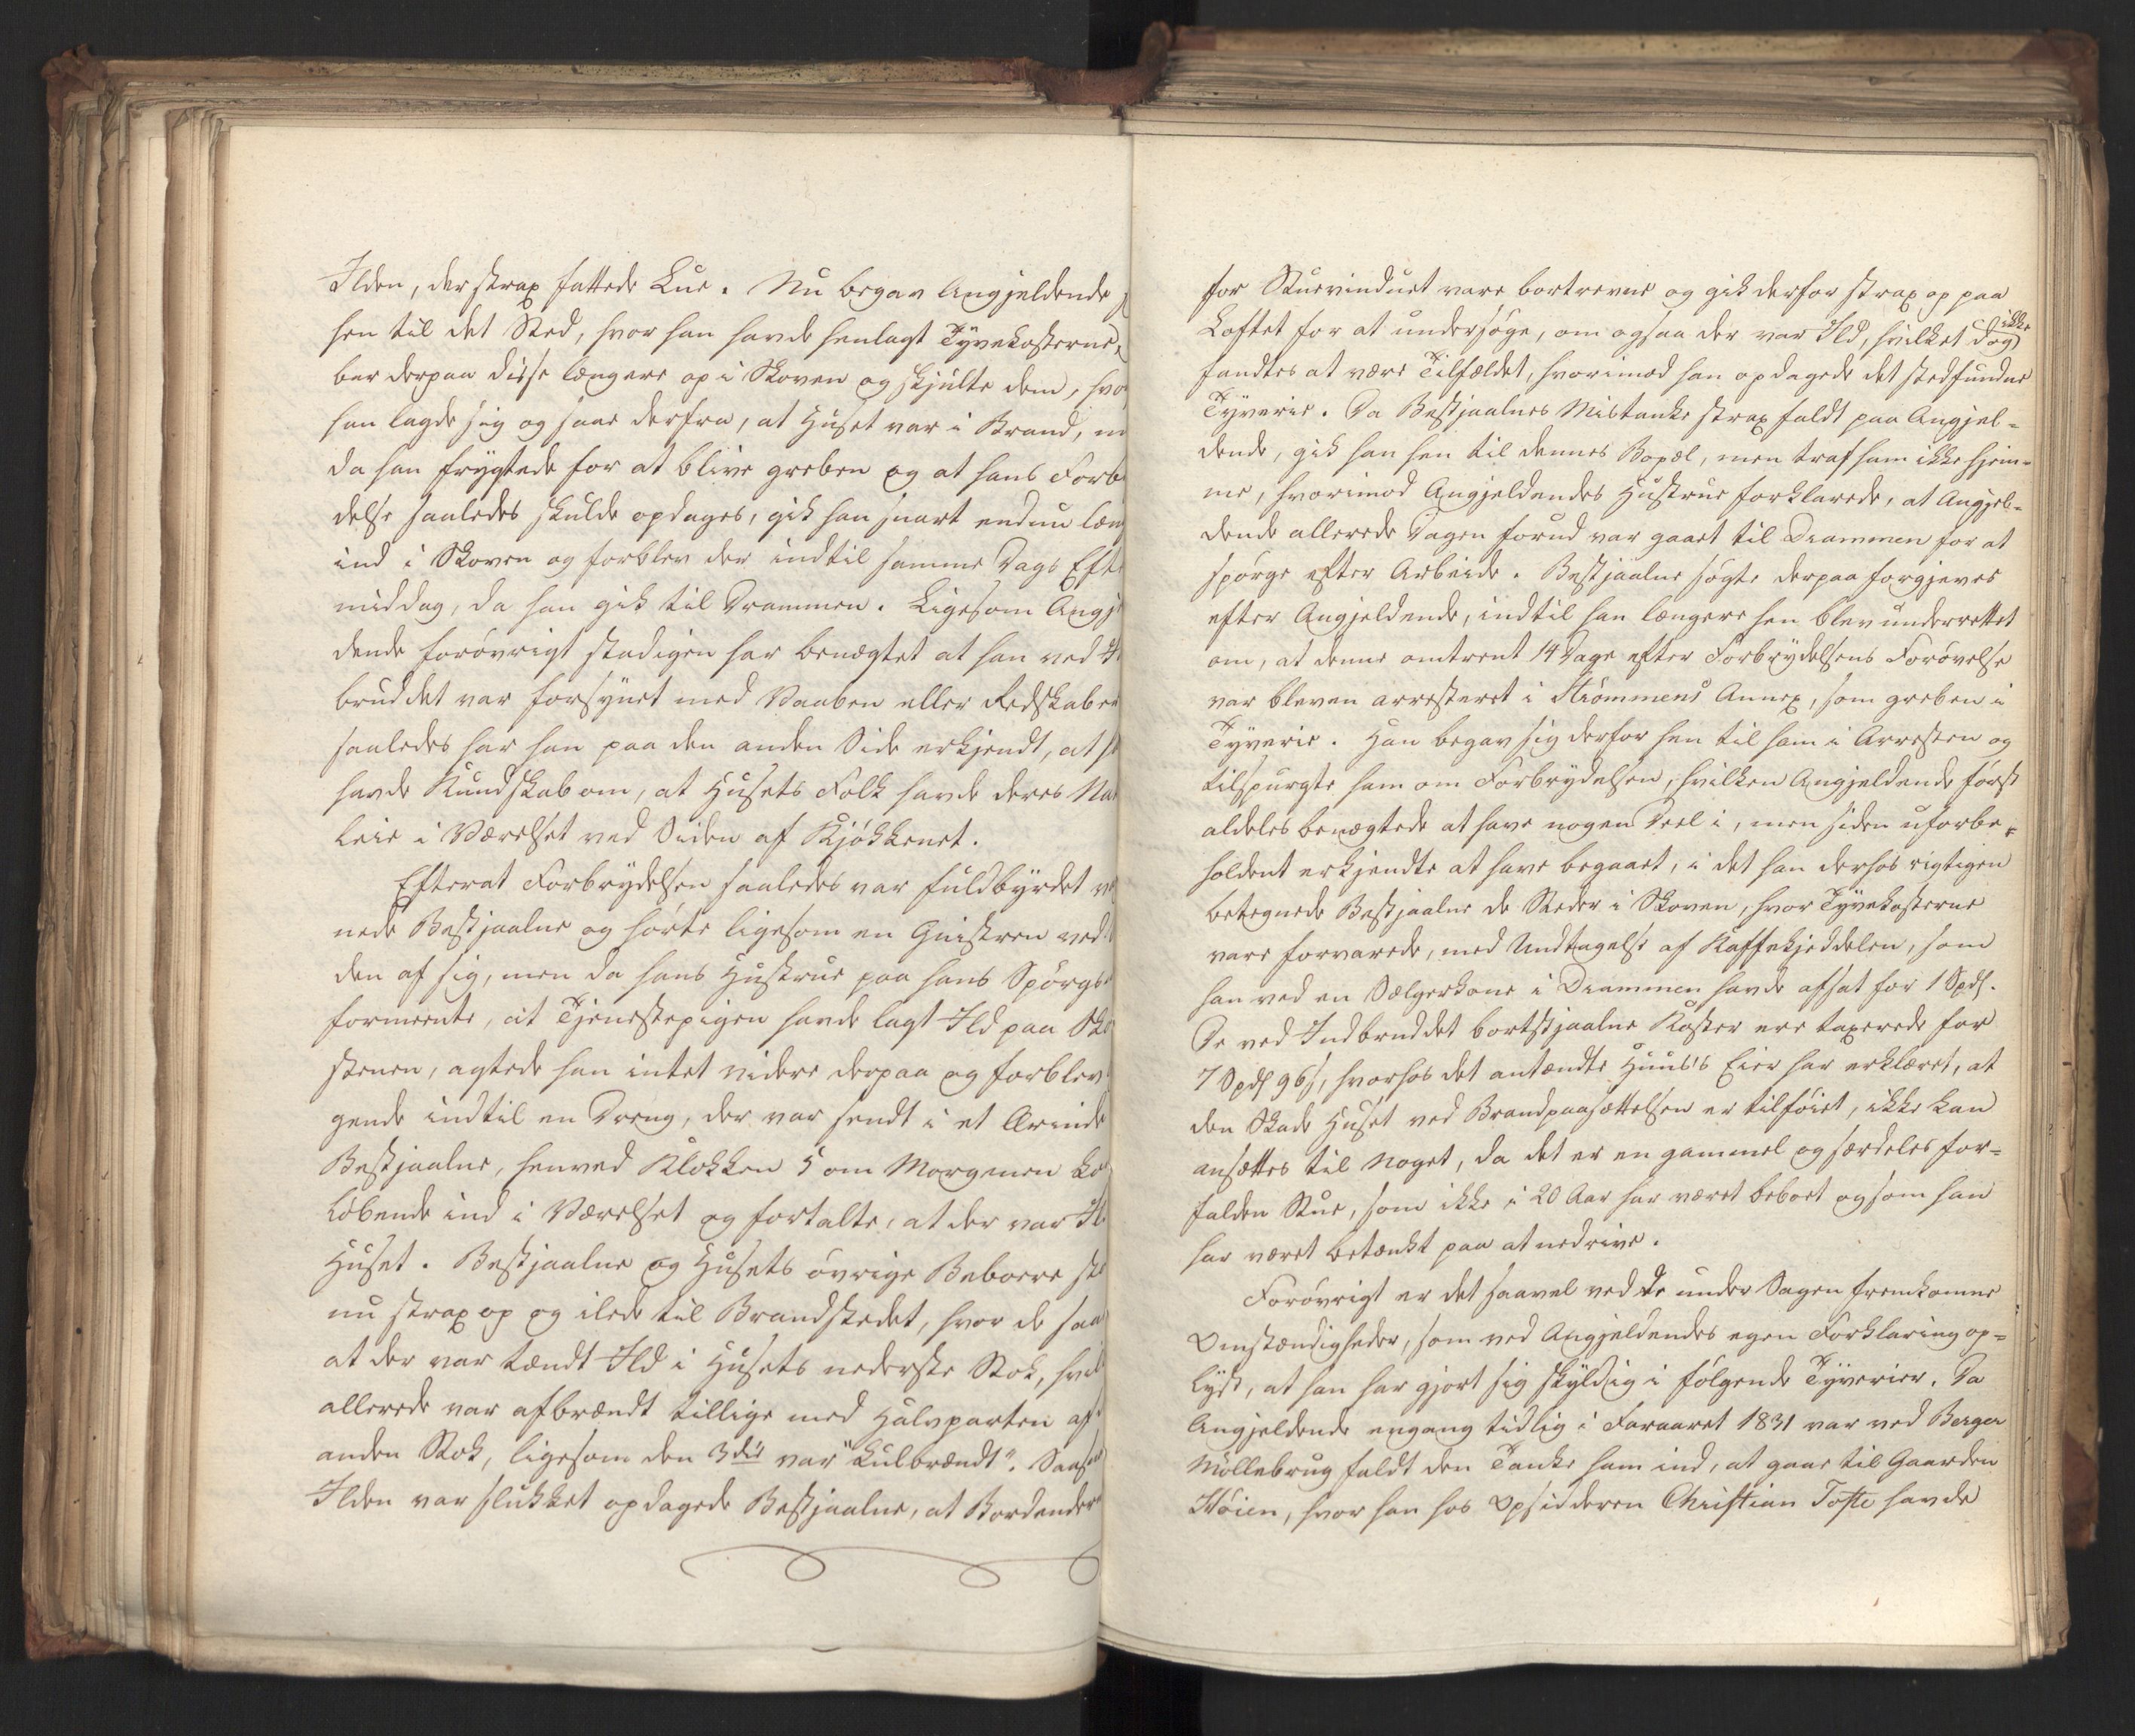 Ilden, der strax fattede Lue. Nu begav Angjeldende
hen til det Sted, hvor han havde henlagt Tyvekosterne,
bar derpaa disse længere op i Skoven og skjulte dem, hvor
han lagde sig og saae derfra, at Huset var i Brand, m
da han frygtede for at blive greben og at hans Forb
delse saaledes skulde opdages, gik han snart endnu læn
ind i Skoven og forblev der indtil samme Dags Efte
middag, da han gik til Drammen. Ligesom Angj
dende forøvrigt stadigen har benægtet at han ved I
bruddet var forsynet med Vaaben eller Redskaber
saaledes har han paa den anden Side erkjendt, at h
havde Kundskab om, at Husets Folk havde deres Na
leie i Værelset ved Siden af Kjøkkenet.
Efterat Forbrydelsen saaledes var fuldbyrdet v
nede Bestjaalne og hørte ligesom en Gnistren ved
den af sig, men da hans Hustrue paa hans Spørgs
formeente, at Tjenestepigen havde lagt Ild paa Sko
stenen, agtede han intet videre derpaa og forblev
gende indtil en Dreng, der var sendt i et Ærinde
Bestjaalne, henved Klokken 5 om Morgenen ko
løbende ind i Værelset og fortalte, at der var Il
Huset. Bestjaalne og Husets øvrige Beboere sto
nu strax op og ilede til Brandstedet, hvor de saa
at der var tændt Ild i Husets nederste Stok, hvil
allerede var afbrændt tillige med Halvparten af
anden Stok, ligesom den 3die var "kulbrændt". Saasn
Ilden var slukket opdagede Bestjaalne, at Bordende
for Stuevinduet vare bortrevne og gik derfor strax op paa
Loftet for at undersøge, om ogsaa der var Ild, hvilket dog ikke
fandtes at være Tilfældet, hvorimod han opdagede det stedfundne
Tyverie. Da Bestjaalnes Mistanke strax faldt paa Angjel-
dende, gik han hen til dennes Bopæl, men traf ham ikke hjem-
me, hvorimod Angjeldendes Hustrue forklarede, at Angjel-
dende allerede Dagen forud var gaaet til Drammen for at
spørge efter Arbeide. Bestjaalne søgte derpaa forgjeves
efter Angjeldende, indtil han længere hen blev underrettet
om, at denne omtrent 14 Dage efter Forbrydelsens Forøvelse
var bleven arresteret i Strømmens Annex, som greben i
Tyverie. Han begav sig derfor hen til ham i Arresten og
tilspurgte ham om Forbrydelsen, hvilken Angjeldende først
aldeles benægtede at have nogen Deel i, men siden uforbe-
holdent erkjendte at have begaaet, i det han derhos rigtigen
betegnede Bestjaalne de Steder i Skoven, hvor Tyvekosterne
vare forvarede, med Undtagelse af Kaffekjeddelen, som
han ved en Sælgerkone i Drammen havde afsat for 1 Spd.
De ved Indbruddet bortstjaalne Koster ere taxerede for
7 Spd 96 s, hvorhos det antændte Huus's Eier har erklæret, at
den Skade Huset ved Brandpaasættelsen er tilføiet, ikke kan
ansættes til noget, da det er en gammel og særdeles for-
falden Stue, som ikke i 20 Aar har været beboet og som han
har været betænkt paa at nedrive.
Forøvrigt er det saavel ved de under Sagen fremkomne
Omstændigheder, som ved Angjeldendes egen Forklaring op-
lyst, at han har gjort sig skyldig i følgende Tyverier. Da
Angjeldende engang tidlig i Foraaret 1831 var ved Berger
Møllebrug faldt den Tanke ham ind, at gaae til Gaarden
Høien, hvor han hos Opsidderen Christian Tofte havde